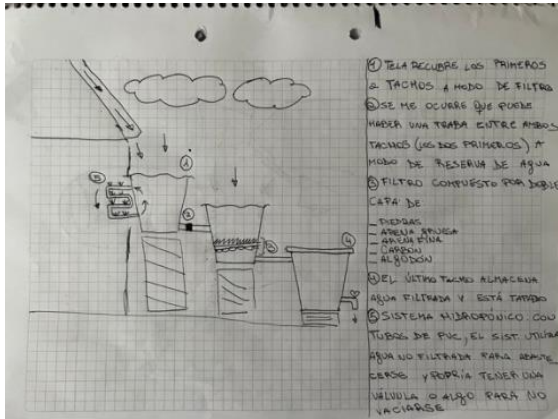 ① TELA RECUBRE LOS PRIMEROS
2 TACHOS A MODO DE FILTRO
② SE ME OCURRE QUE PUEDE
HABER UNA TRABA ENTRE AMBOS
TACHOS (LOS DOS PRIMEROS) A
MODO DE RESERVA DE AGUA
③ FILTRO COMPUESTO POR DOBLE
CAPA DE
— PIEDRAS
— ARENA GRUESA
— ARENA FINA
— CARBON
— ALGODÓN
④ EL ÚLTIMO TACHO ALMACENA
AGUA FILTRADA Y ESTÁ TAPADO
⑤ SISTEMA HIDROPÓNICO CON
TUBOS DE PVC, EL SIST. UTILIZA
AGUA NO FILTRADA PARA ABASTE
CERSE Y PODRÍA TENER UNA
VÁLVULA O ALGO PARA NO
VACIARSE
①
⑤
②
③
④